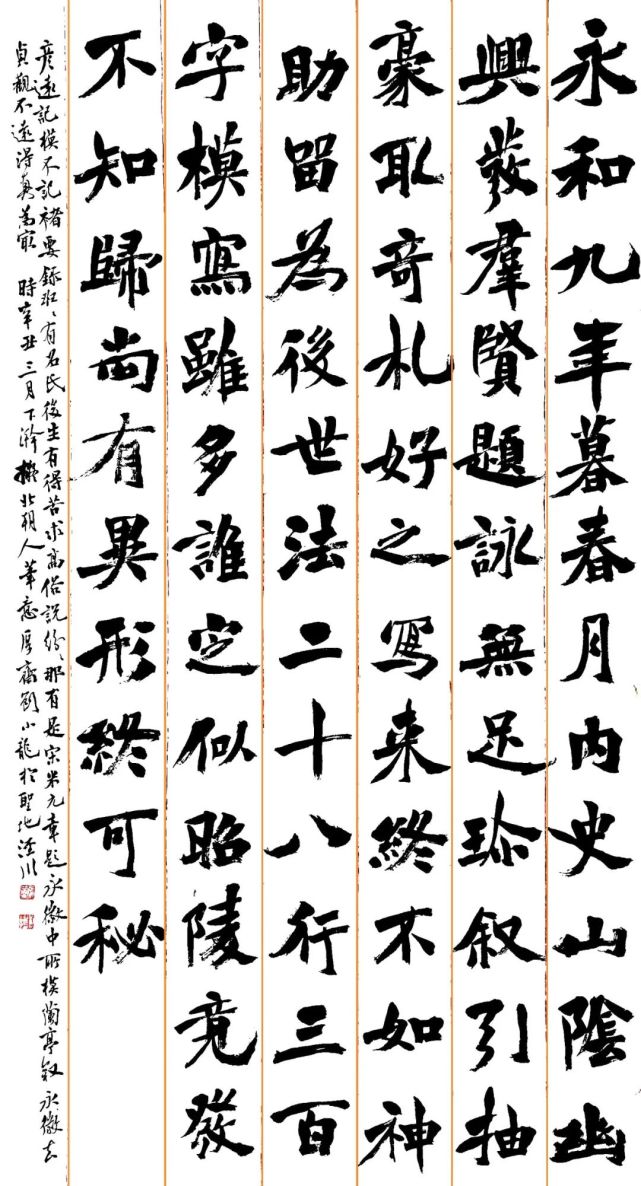 永和九年暮春月内史山陰幽
興發羣賢題詠無足珎叙引抽
豪取奇札好之写来終不如神
助留為後世法二十八行三百
字模寫雖多誰定似昭陵竟發
不知歸尚有異形終可秘
彦遠記模不記褚要録班〻有名氏後生有得苦求高俗説紛那有是宋米元章題永徽中所模蘭亭叙永徽去
貞觀不遠得真為最 時辛丑三月下澣擬北朝人筆意厚齋劉小龍於聖地涇川